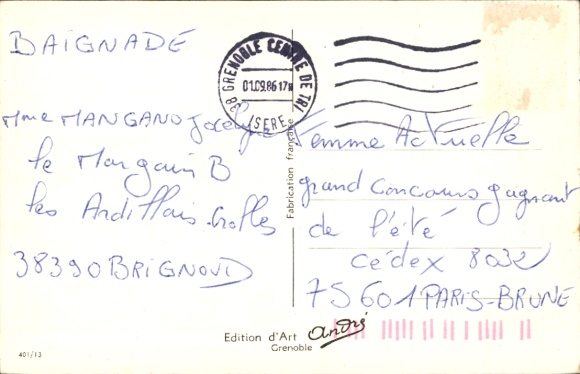 BAIGNADE
Mme MANGANO Jocelyne
le Margain B
les Ardillais. Crolles
38390 BRIGNOUD
38 GRENOBLE CENTRE DE TRI
01.09.86 17H
ISERE
Fabrication française
Femme Actuelle
grand Concours gagnant
de l'été
cédex 8032
75601 PARIS-BRUNE
Edition d'Art andré
Grenoble
401/13